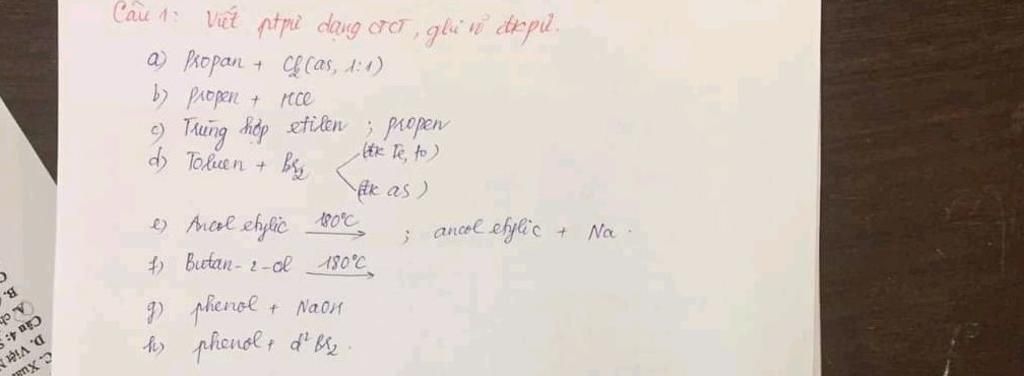 Câu 1: Viết ptpứ dạng CTCT, ghi rõ đkpứ.
a) Propan + Cl2 (as, 1:1)
b) propen + HCl
c) Trùng hợp etilen ; propen
d) Toluen + Br2 (đk Fe, to)
(đk as)
e) Ancol etylic 180°C → ; ancol etylic + Na.
f) Butan-2-ol 180°C →
g) phenol + NaOH
h) phenol + d² Br2.
C. Xuâ
D. Việt N
Câu 4: S
A. ch
B.